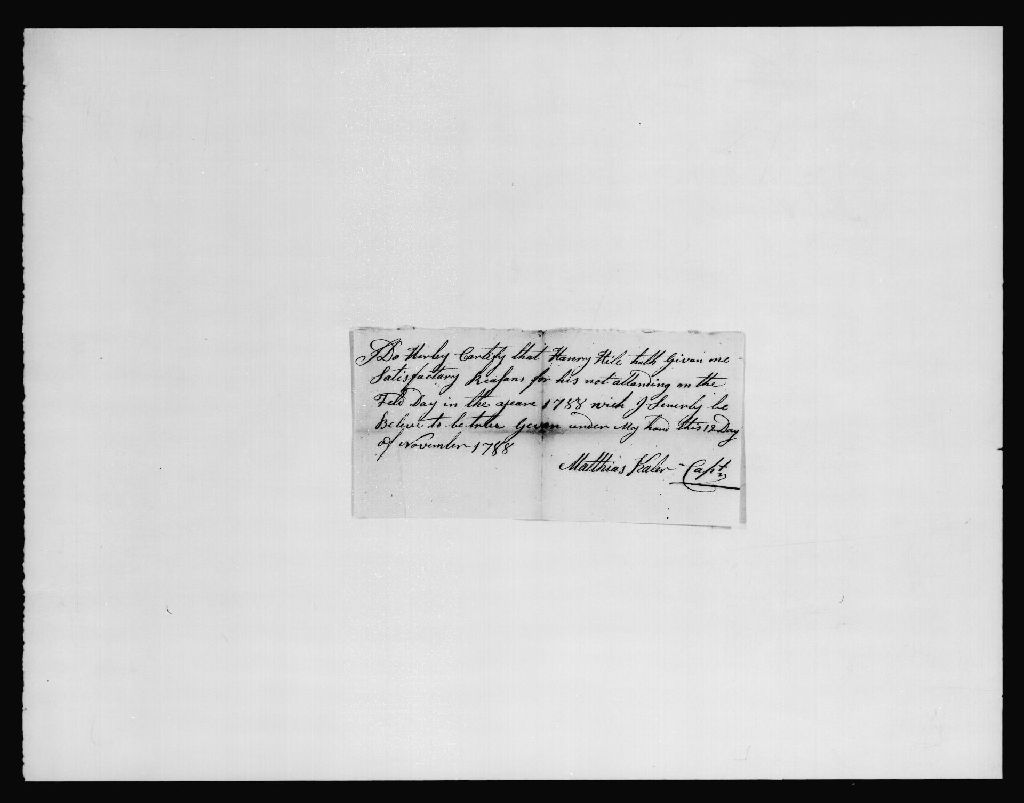 I Do Herby Cartify that Hanry Hih hath Givan me
Satisfactary Reasans for his not attanding on the
Feld Day in the yeare 1788 wich J Senerly be
Beleive to be true Given under My hand this 12 Day
of November 1788
Matthias Kaler Capt